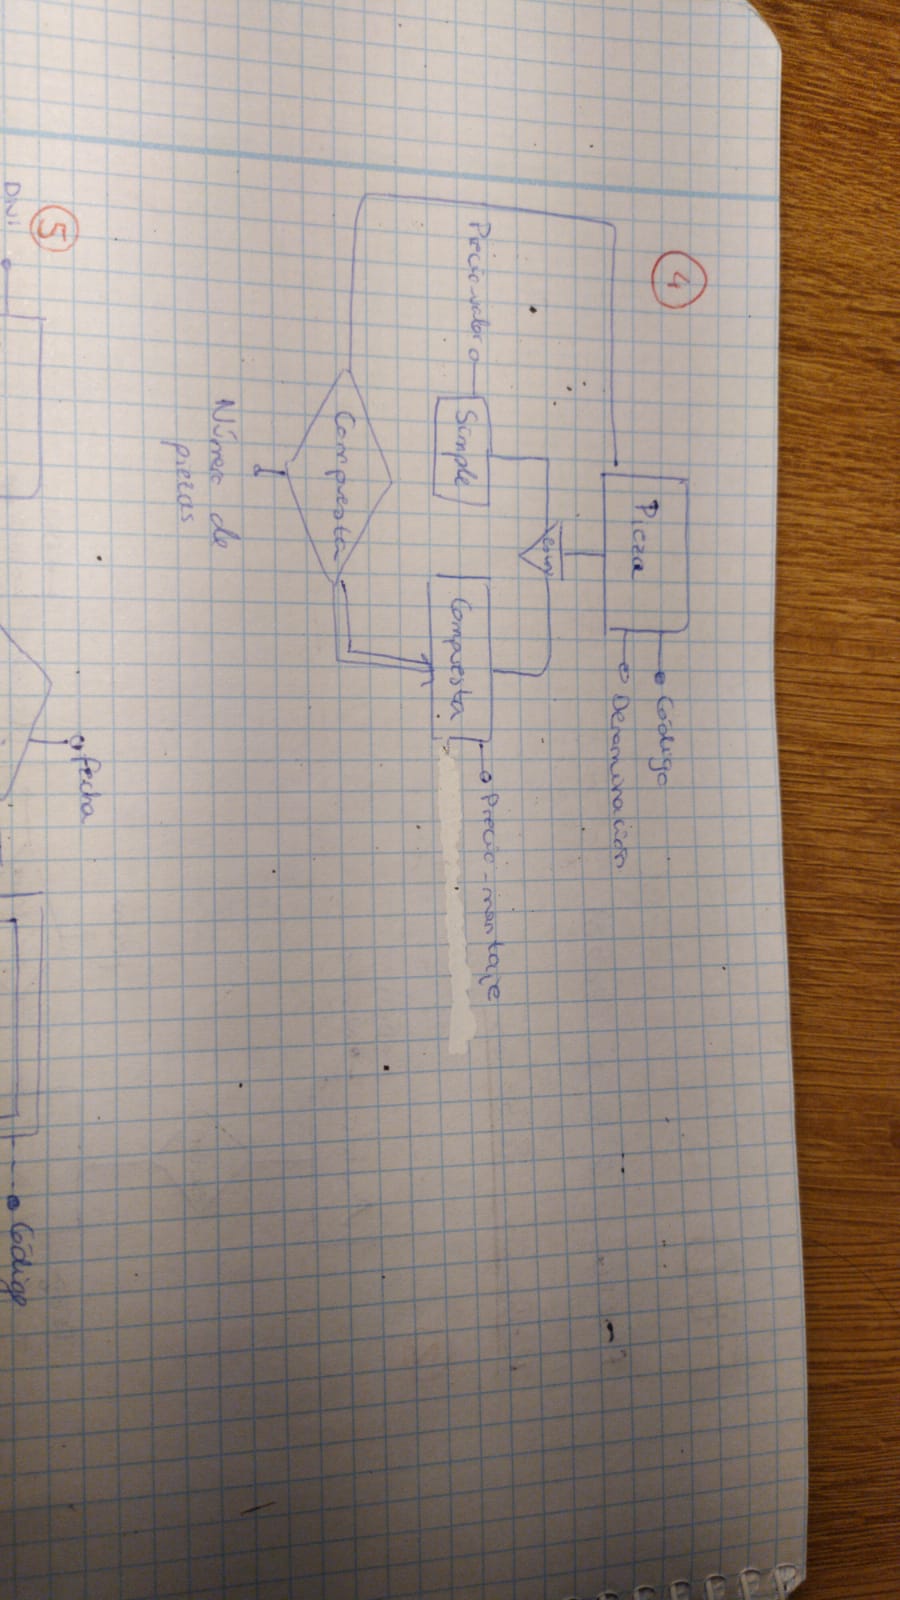 4
Pieza
Código
Denominación
Precio-valor
Simple
Compuesta
Precio-montaje
Compuesta
Número de
piezas
5
fecha
DNI
Código